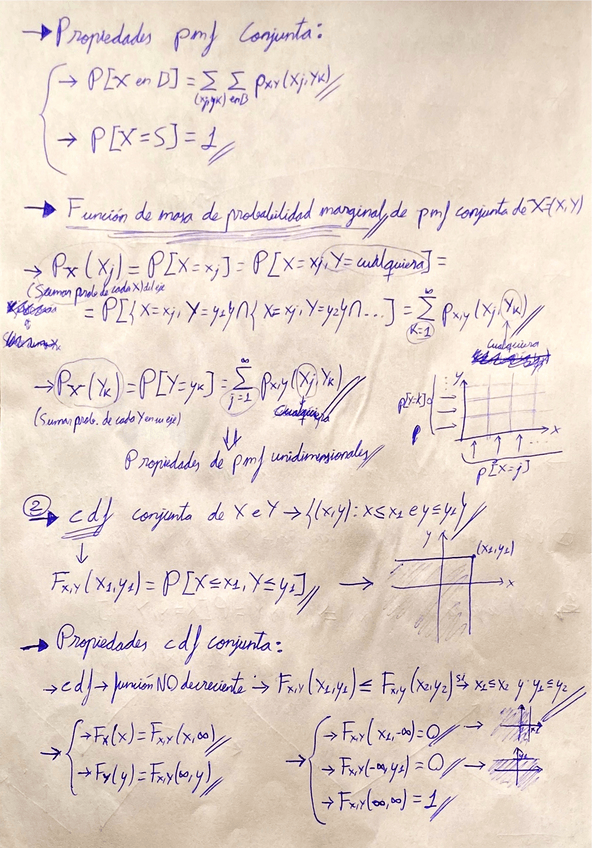 → Propiedades pmf Conjunta:
→ P[X en B] = Σ Σ p_{X,Y}(x_j, y_k)
(x_j, y_k) en B
→ P[X=S] = 1
→ Función de masa de probabilidad marginal, de pmf conjunta de X=(X,Y)
→ P_X(x_j) = P[X=x_j] = P[X=x_j, Y=cualquiera] =
(Sumar prob. de cada X) del eje
= P[{X=x_j, Y=y_1} ∩ {X=x_j, Y=y_2} ∩ ...] = Σ_{k=1}^{∞} p_{x,y}(x_j, y_k)
cualquiera
→ P_Y(y_k) = P[Y=y_k] = Σ_{j=1}^{∞} p_{x,y}(x_j, y_k)
(Sumar prob. de cada Y en su eje)
Cualquiera
y
P[Y=k]
x
P[X=j]
⇓
Propiedades de pmf unidimensionales
② → cdf conjunta de X e Y → {(x,y): x≤x_1 e y≤y_1}
↓
F_{X,Y}(x_1, y_1) = P[X≤x_1, Y≤y_1] →
y
(x_1, y_1)
x
→ Propiedades cdf conjunta:
→ cdf → función NO decreciente → F_{X,Y}(x_1, y_1) ≤ F_{X,Y}(x_2, y_2) si → x_1≤x_2 y y_1≤y_2
→ { → F_X(x) = F_{X,Y}(x, ∞)
→ F_Y(y) = F_{X,Y}(∞, y)
→ { → F_{X,Y}(x_1, -∞) = 0 →
x_1
→ F_{X,Y}(-∞, y_1) = 0 →
y_1
→ F_{X,Y}(∞, ∞) = 1